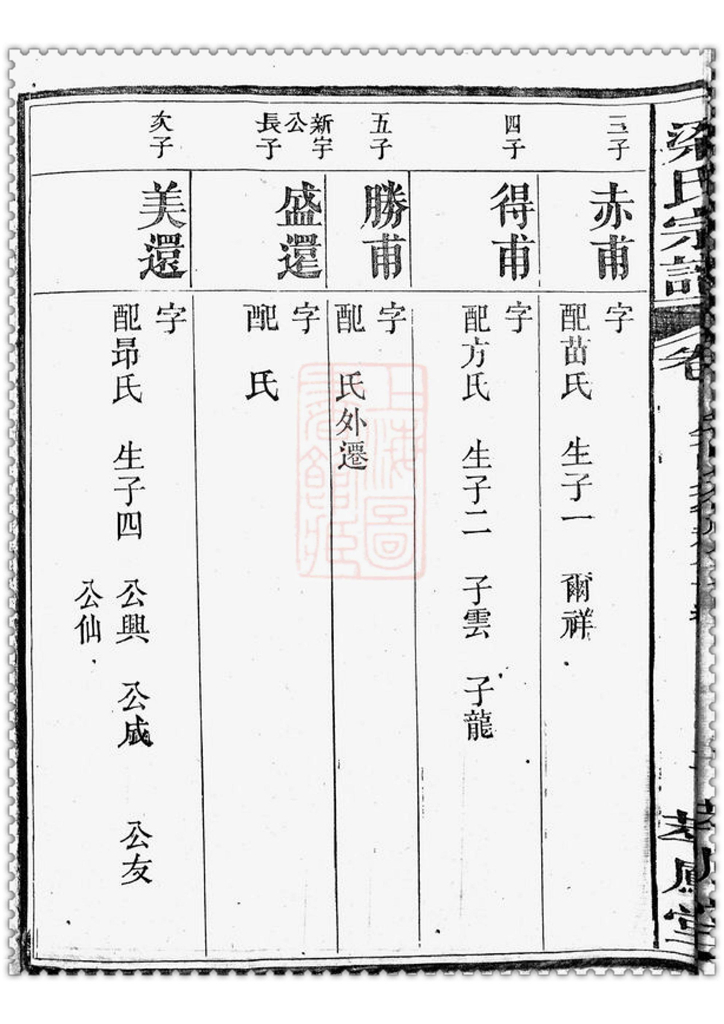 梁氏宗譜
卷
三子
赤甫
字
配苗氏 生子一 爾祥
四子
得甫
字
配方氏 生子二 子雲 子龍
五子
勝甫
字
配 氏外遷
新宇
公
長子
盛還
字
配 氏
次子
美還
字
配昻氏 生子四 公興 公咸 公友
公仙
上海圖
書館藏